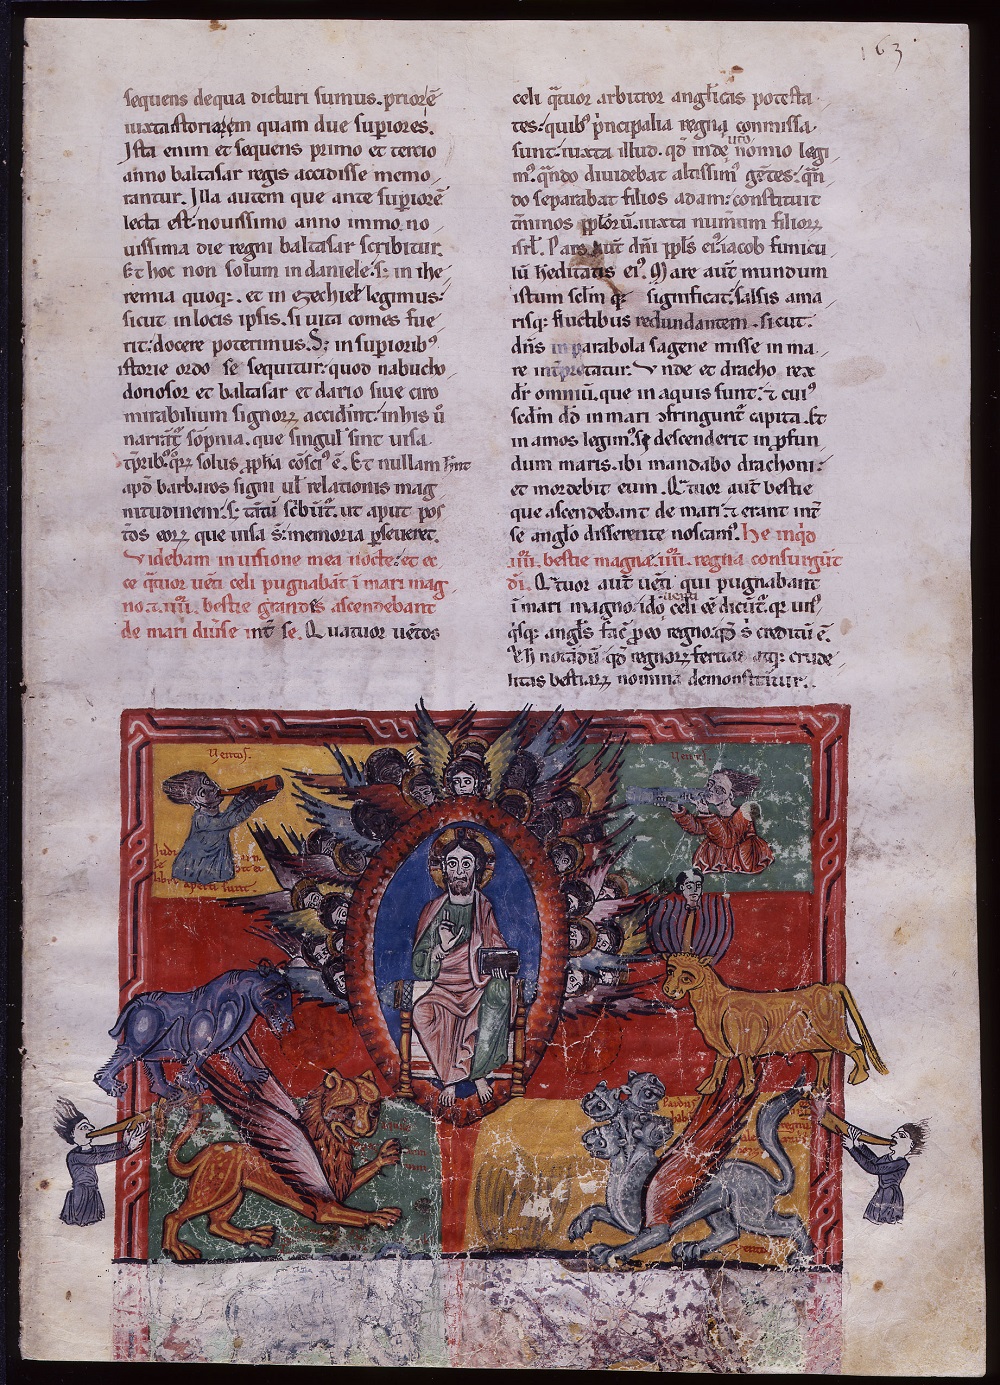 163
sequens de qua dicturi sumus. priorē
iuxta storiarem quam due superiores.
Ista enim et sequens primo et tercio
anno baltasar regis accidisse memo
rantur. Illa autem que ante superiorē
lecta est. nouissimo anno immo no
uissima die regni baltasar scribitur.
Et hoc non solum in daniele. s; in ihe
remia quoq;. et in ezechiel legimus:
sicut in locis ipsis. si uita comes fue
rit: docere poterimus. S; in superiorib;
istorie ordo se sequitur: quod nabucho
donosor et baltasar et dario siue ciro
mirabilium signorꝝ accidint: in his ū
narrāt sōpnia. que singul' sint uisa
solus ꝓpha cōsci' ē. Et nullam hnt
apd barbaros signi ul' relationis mag
nitudinem: ut aput pos
tōs eorꝝ que uisa s̄: memoria ꝑseueret.
Videbam in uisione mea nocte: et ec
ce q̄tuor uēti celi pugnabāt ī mari mag
no. ⁊ .iiii. bestie grandes ascendebant
de mari diuīse int' se. Quatuor uētos
celi q̄tuor arbitror anglicis potesta
tes: quib; p̄ncipalia regna conmissa
sunt. iuxta illud. qd in deutº nomio legi
m'. q̄ndo diuidebat altissim' gētes: q̄n
do separabat filios adam: constituit
t̄minos ppl'orū. iuxta num̄um filiorꝝ
isrl'. Pars aut' dn̄i ppl's ei'. iacob funicu
lū hereditatis ei'. Mare aut' mundum
istum sclm significat. salsis ama
risq; fluctibus redundantem. sicut
dn̄s in parabola sagene misse in ma
re int'pretatur. Vnde et dracho rex
dr' omniū. que in aquis sunt. ⁊ cui'
scdm dd in mari ɔfringunt' capita. Et
in amos legim' si descenderit in ꝓfun
dum maris. ibi mandabo drachoni:
et mordebit eum. Q̄tuor aut' bestie
que ascendebant de mari. ⁊ erant int'
se anglo differente noscam'. He inqd
.iiii. bestie magna .iiii. regna consurgūt
di. Q̄tuor aut' uēti qui pugnabant
ī mari magno. idō uenti celi eē dicunt'. qr uni'
q'sq; angl's fac ꝓ eo regno. qd s' creditū ē.
notādū qd regnorꝝ feritas atq; crude
litas bestiarꝝ nomina demonstitur.
Uentos.
Uentos.
libri aperti sunt.